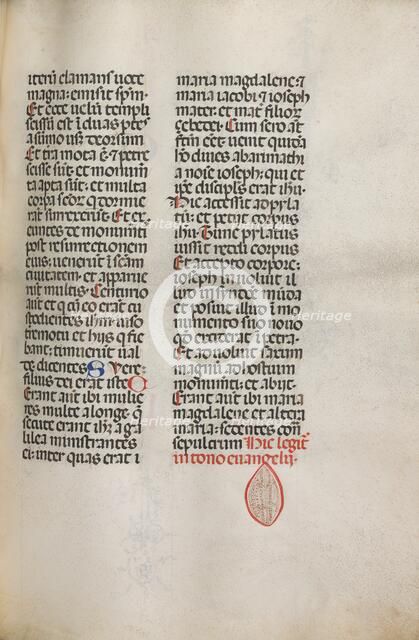 iterū clamans uoce
magna: emisit spm̄.
Et ecce uelū templi
scissū est ī duas ptes
a sūmo usq; deorsum
Et tra mota ē: ⁊ petre
scisse sūt: et monum̄
ta apta sūt: et multa
corpa scōr q̄ dormie
rāt surrexerūt. Et ex
euntes de monum̄
post resurrectionem
eius: uenerūt ī scām
ciuitatem: et apparue
rūt multis. Centurio
aūt et q̄ cū eo erāt cu
stodientes ihm̄: uiso
tremotu et hys q̄ fie
bant: timuerūt ual
de dicentes. Uere
filius dei erat iste.
Erant aūt ibi mulie
res multe a longe: q̄
secute erant ihm̄ a ga
lilea ministrantes
ei: inter quas erat ī
maria magdalene: ⁊
maria iacobi ⁊ ioseph
mater: et mat̄ filior
zebedei. Cum sero aūt
ftm̄ eēt: uenit quidā
hō diues ab arimathi
a noīe ioseph: qui et
ipe discipls erat ihū.
Hic accessit ad pyla
tū: et petiit corpus
ihū. Tunc pylatus
iussit reddi corpus
Et accepto corpore:
ioseph inuoluit il
lud in syndōe mūda
et posuit illud ī mo
numento suo nouo
qd̄ exciderat ī petra.
Et aduoluit saxum
magnū ad hostium
monum̄ti: et abijt.
Erant aūt ibi maria
magdalene et altera
maria: sedentes con̄
sepulcrum. Hic legit̄
in tono euangelij.
Heritage
Heritage
Heritage
Heritage